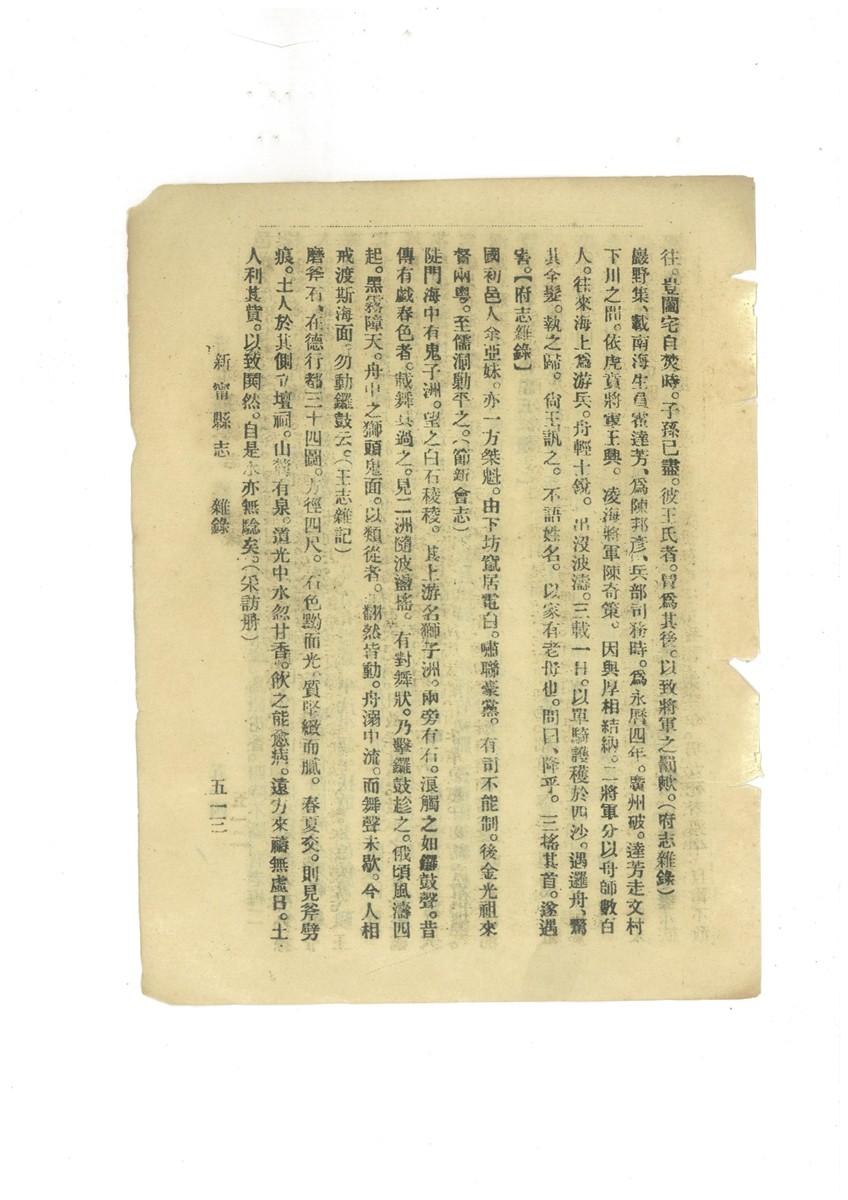 往。豈闔宅自焚時。子孫已盡。彼王氏者。冒爲其後。以致將軍之罰歟。(府志雜錄)
巖野集、載南海生員霍達芳、爲陳邦彥、兵部司務時。爲永曆四年。廣州破。達芳走文村
下川之間。依虎賁將軍王興。凌海將軍陳奇策。因與厚相結納。二將軍分以舟師數百
人。往來海上爲游兵。舟輕士銳。出沒波濤。三載一日。以單騎護穫於四沙。遇邏舟、驚
其全髮。執之歸。尙王訊之。不語姓名。以家有老母也。問曰、降乎。三搖其首。遂遇
害。【府志雜錄】
國初邑人余亞妹。亦一方桀魁。由下坊竄居電白。嘯聯豪黨。有司不能制。後金光祖來
督兩粤。至儒洞勦平之。(節新會志)
陡門海中有鬼子洲。望之白石稜稜。其上游名獅子洲。兩旁有石。浪觸之如鑼鼓聲。昔
傳有戲春色者。載舞具過之。見二洲隨波盪搖。有對舞狀。乃擊鑼鼓趁之。俄頃風濤四
起。黑霧障天。舟中之獅頭鬼面。以類從者。翻然皆動。舟溺中流。而舞聲未歇。今人相
戒渡斯海面。勿動鑼鼓云。(王志雜記)
磨斧石、在德行都三十四圖。方徑四尺。石色黝而光。質堅緻而膩。春夏交。則見斧劈
痕。土人於其側立壇祠。山有泉。道光中水忽甘香。飲之能愈病。遠方來禱無虛日。土
人利其貲。以致鬨然。自是水亦無驗矣。(采訪册)
新甯縣志 雜錄
五一三